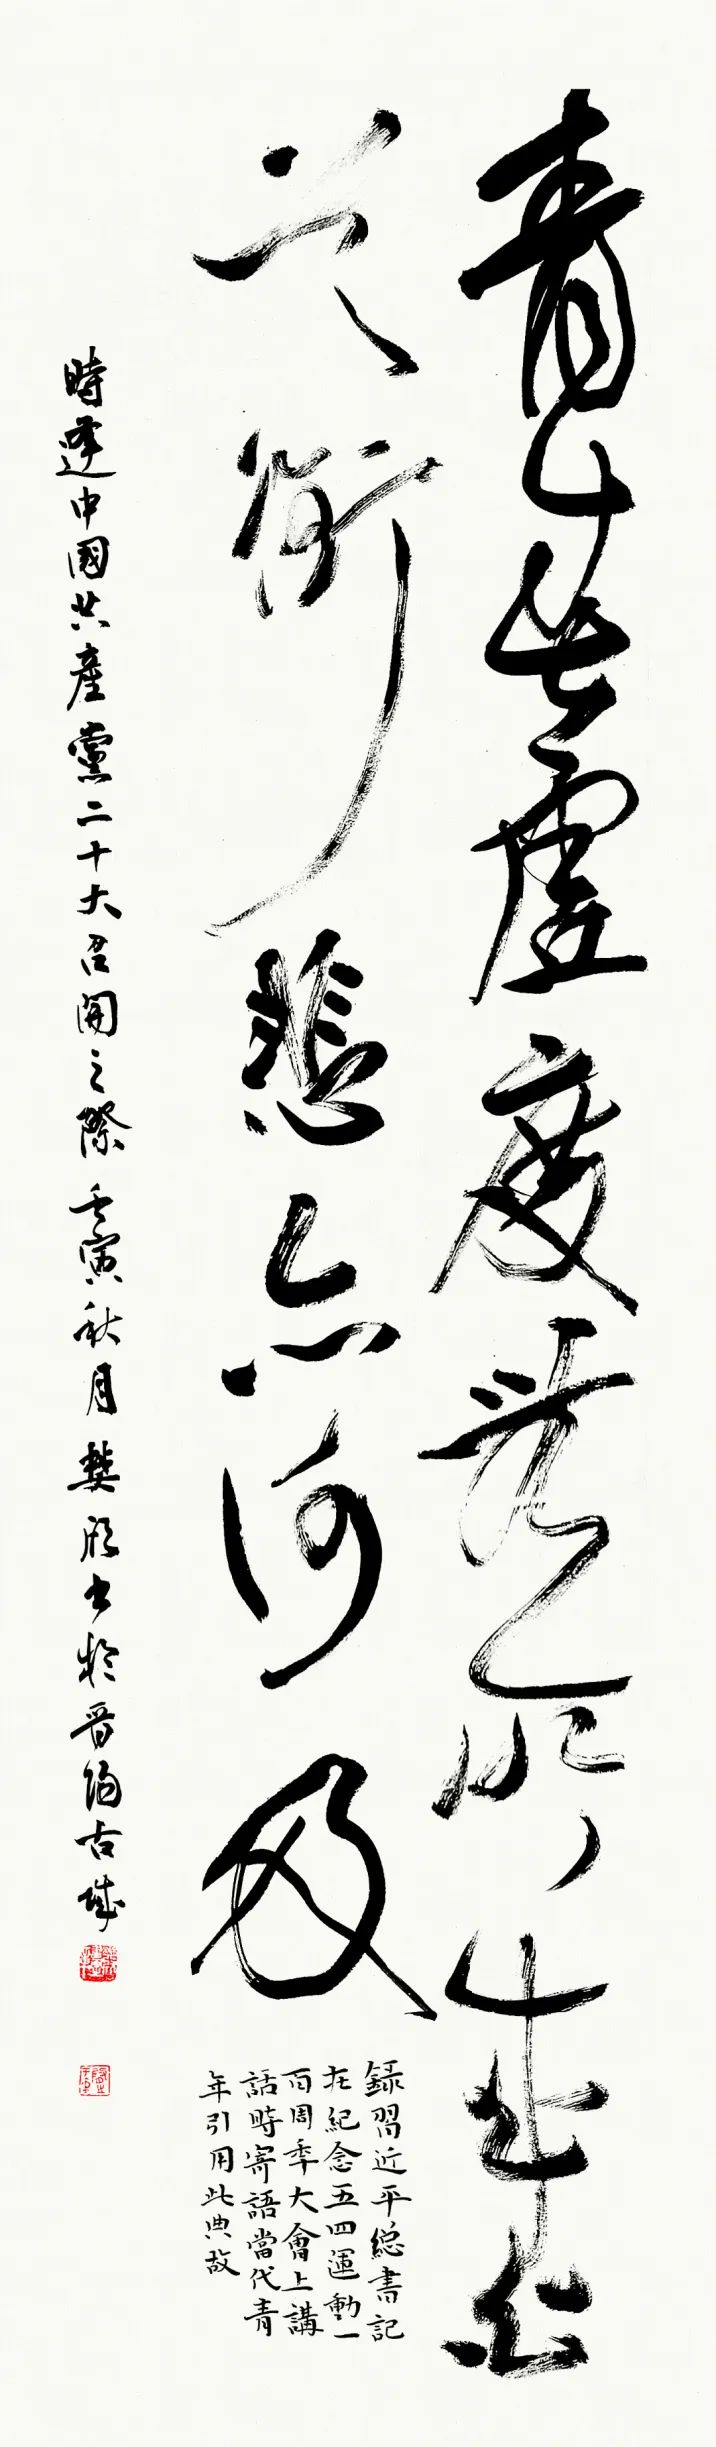 青春虛度無所成白
首銜悲亦何及
錄習近平總書記
在紀念五四運動一
百周年大會上講
話時寄語當代青
年引用此典故
時逢中國共產黨二十大召開之際 壬寅秋月 樊欣書於晉陽古城